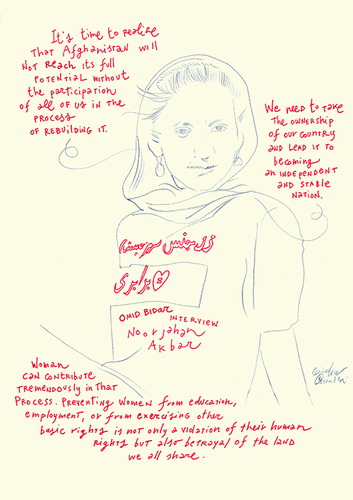 It's time to realize
That Afghanistan will
NOT REACH ITS FULL
POTENTIAL WITHOUT
the participation
of all of us in the
PROCESS
OF REBUILDING IT.
We need to take
The OWNERSHIP
OF OUR COUNTRY
AND LEAD IT TO
becoming
an INDEPENDENT
AND STABLE
NATION.
برابری
OMID BIDAR INTERVIEW
Noorjahan
Akbar
Woman
CAN CONTRIBUTE
TREMENDOUSLY IN THAT
PROCESS. PREVENTING WOMEN FROM EDUCATION,
EMPLOYMENT, OR FROM EXERCISING OTHER
basic rights is not only a violation of their human
Rights but also betrayal of the land
we all share.